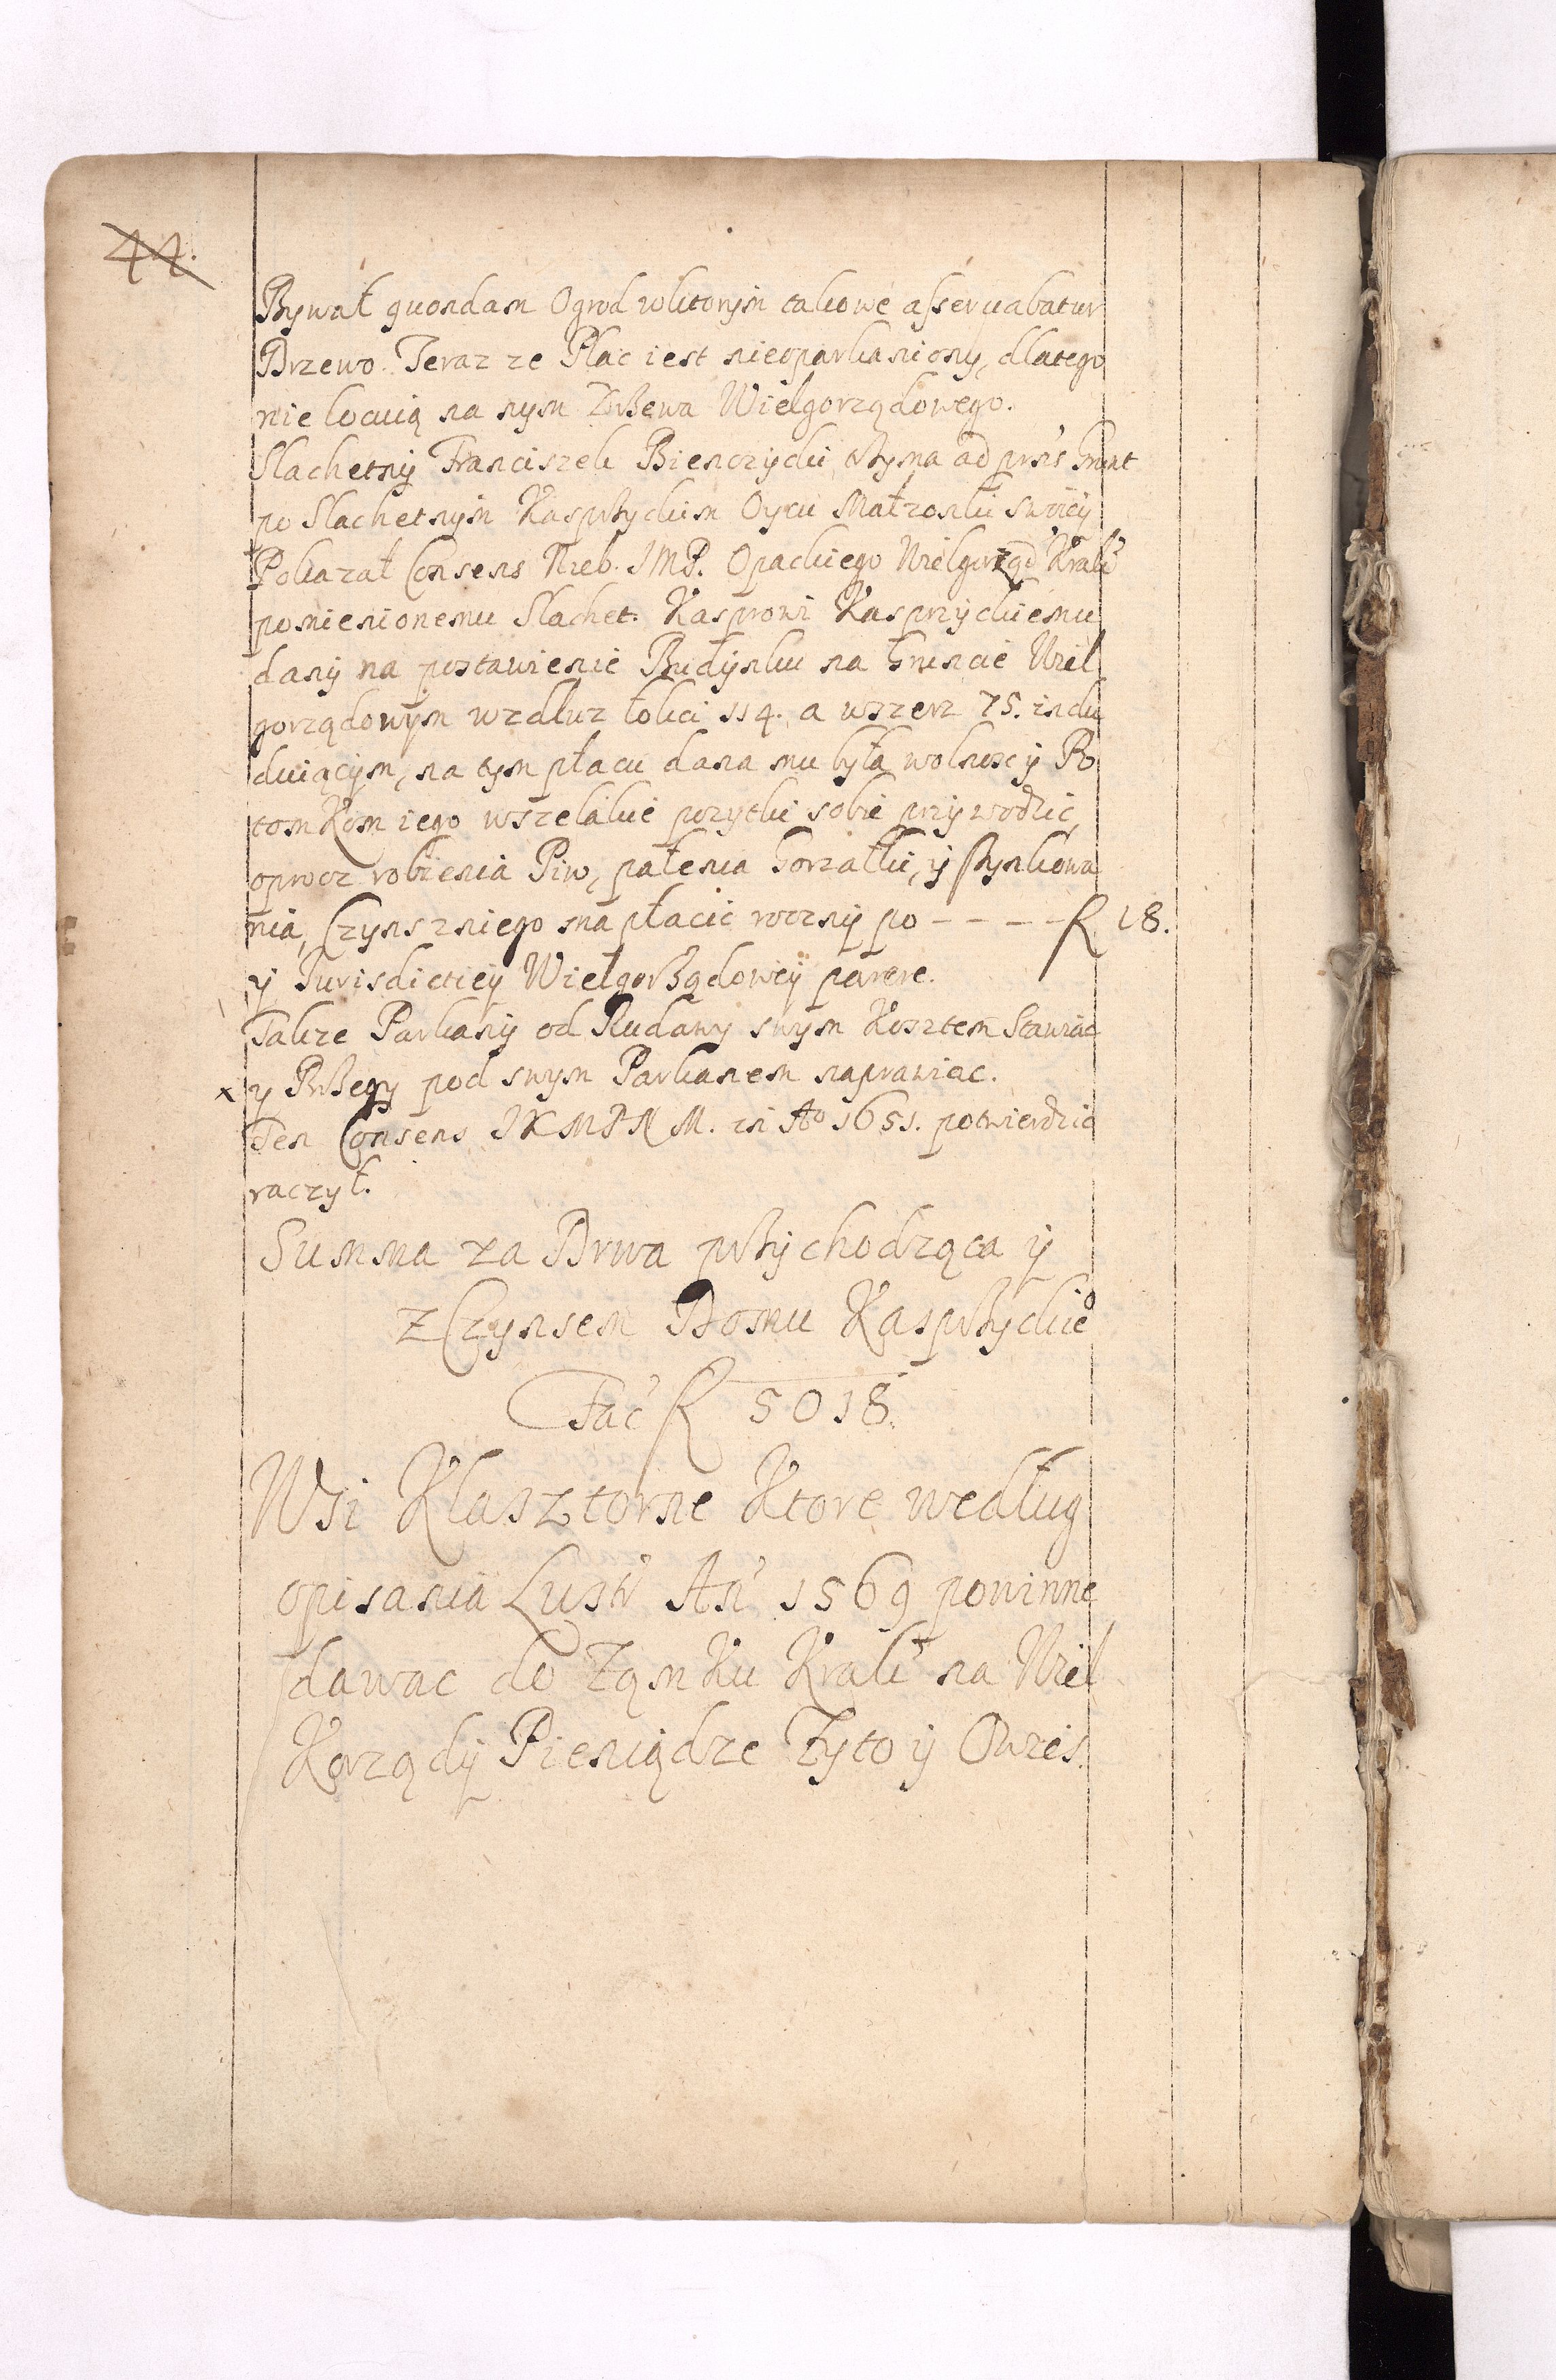 44.
Bywał quondam Ogrod wktorym takowe asseruabatur
Drzewo. Teraz ze Plac iest nieoparkaniony, dlatego
nie locuią na nym Drzewa Wielgorządowego.
Slachetny Franciszek Bienczycki trzyma ad prns Grunt
po Slachetnym Kasprzyckim Oycu Małzonki swoiey
Pokazał Consens Wieb. JMP. Opackiego Wielgorząd Krak
pomienionemu Slachet. Kasprowi Kasprzyckiemu
dany na postawienie Budynku na Gruncie Wiel
gorządowym wzdluz łokci 114. a wszerz 75. indu
duiącym, na tym płacu dana mu była wolnosc y Po
tomkom iego wszelakie pozytki sobie przywodzic,
oprocz robienia Piw, palenia Gorzałki, y szynkowa
nia, Czynsz niego ma płacic roczny po - - - - - R 18.
y Jurisdictiey Wielgorządowey parere.
Takze Parkany od Rudawy swym Kosztem Stawiac
x y Brzegy pod swym Parkanem naprawiac.
Ten Consens JKMPNM. in Ao 1651. potwierdzic
raczył.
Summa za Drwa przychodząca y
z Czynsem Domu Kasprzyckie
Fac R 5018.
Wsi Klasztorne Ktore według
opisania Lustr An 1569 powinne
dawac do Zamku Krak na Wiel
Korządy Pieniądze Zyto y Owies.